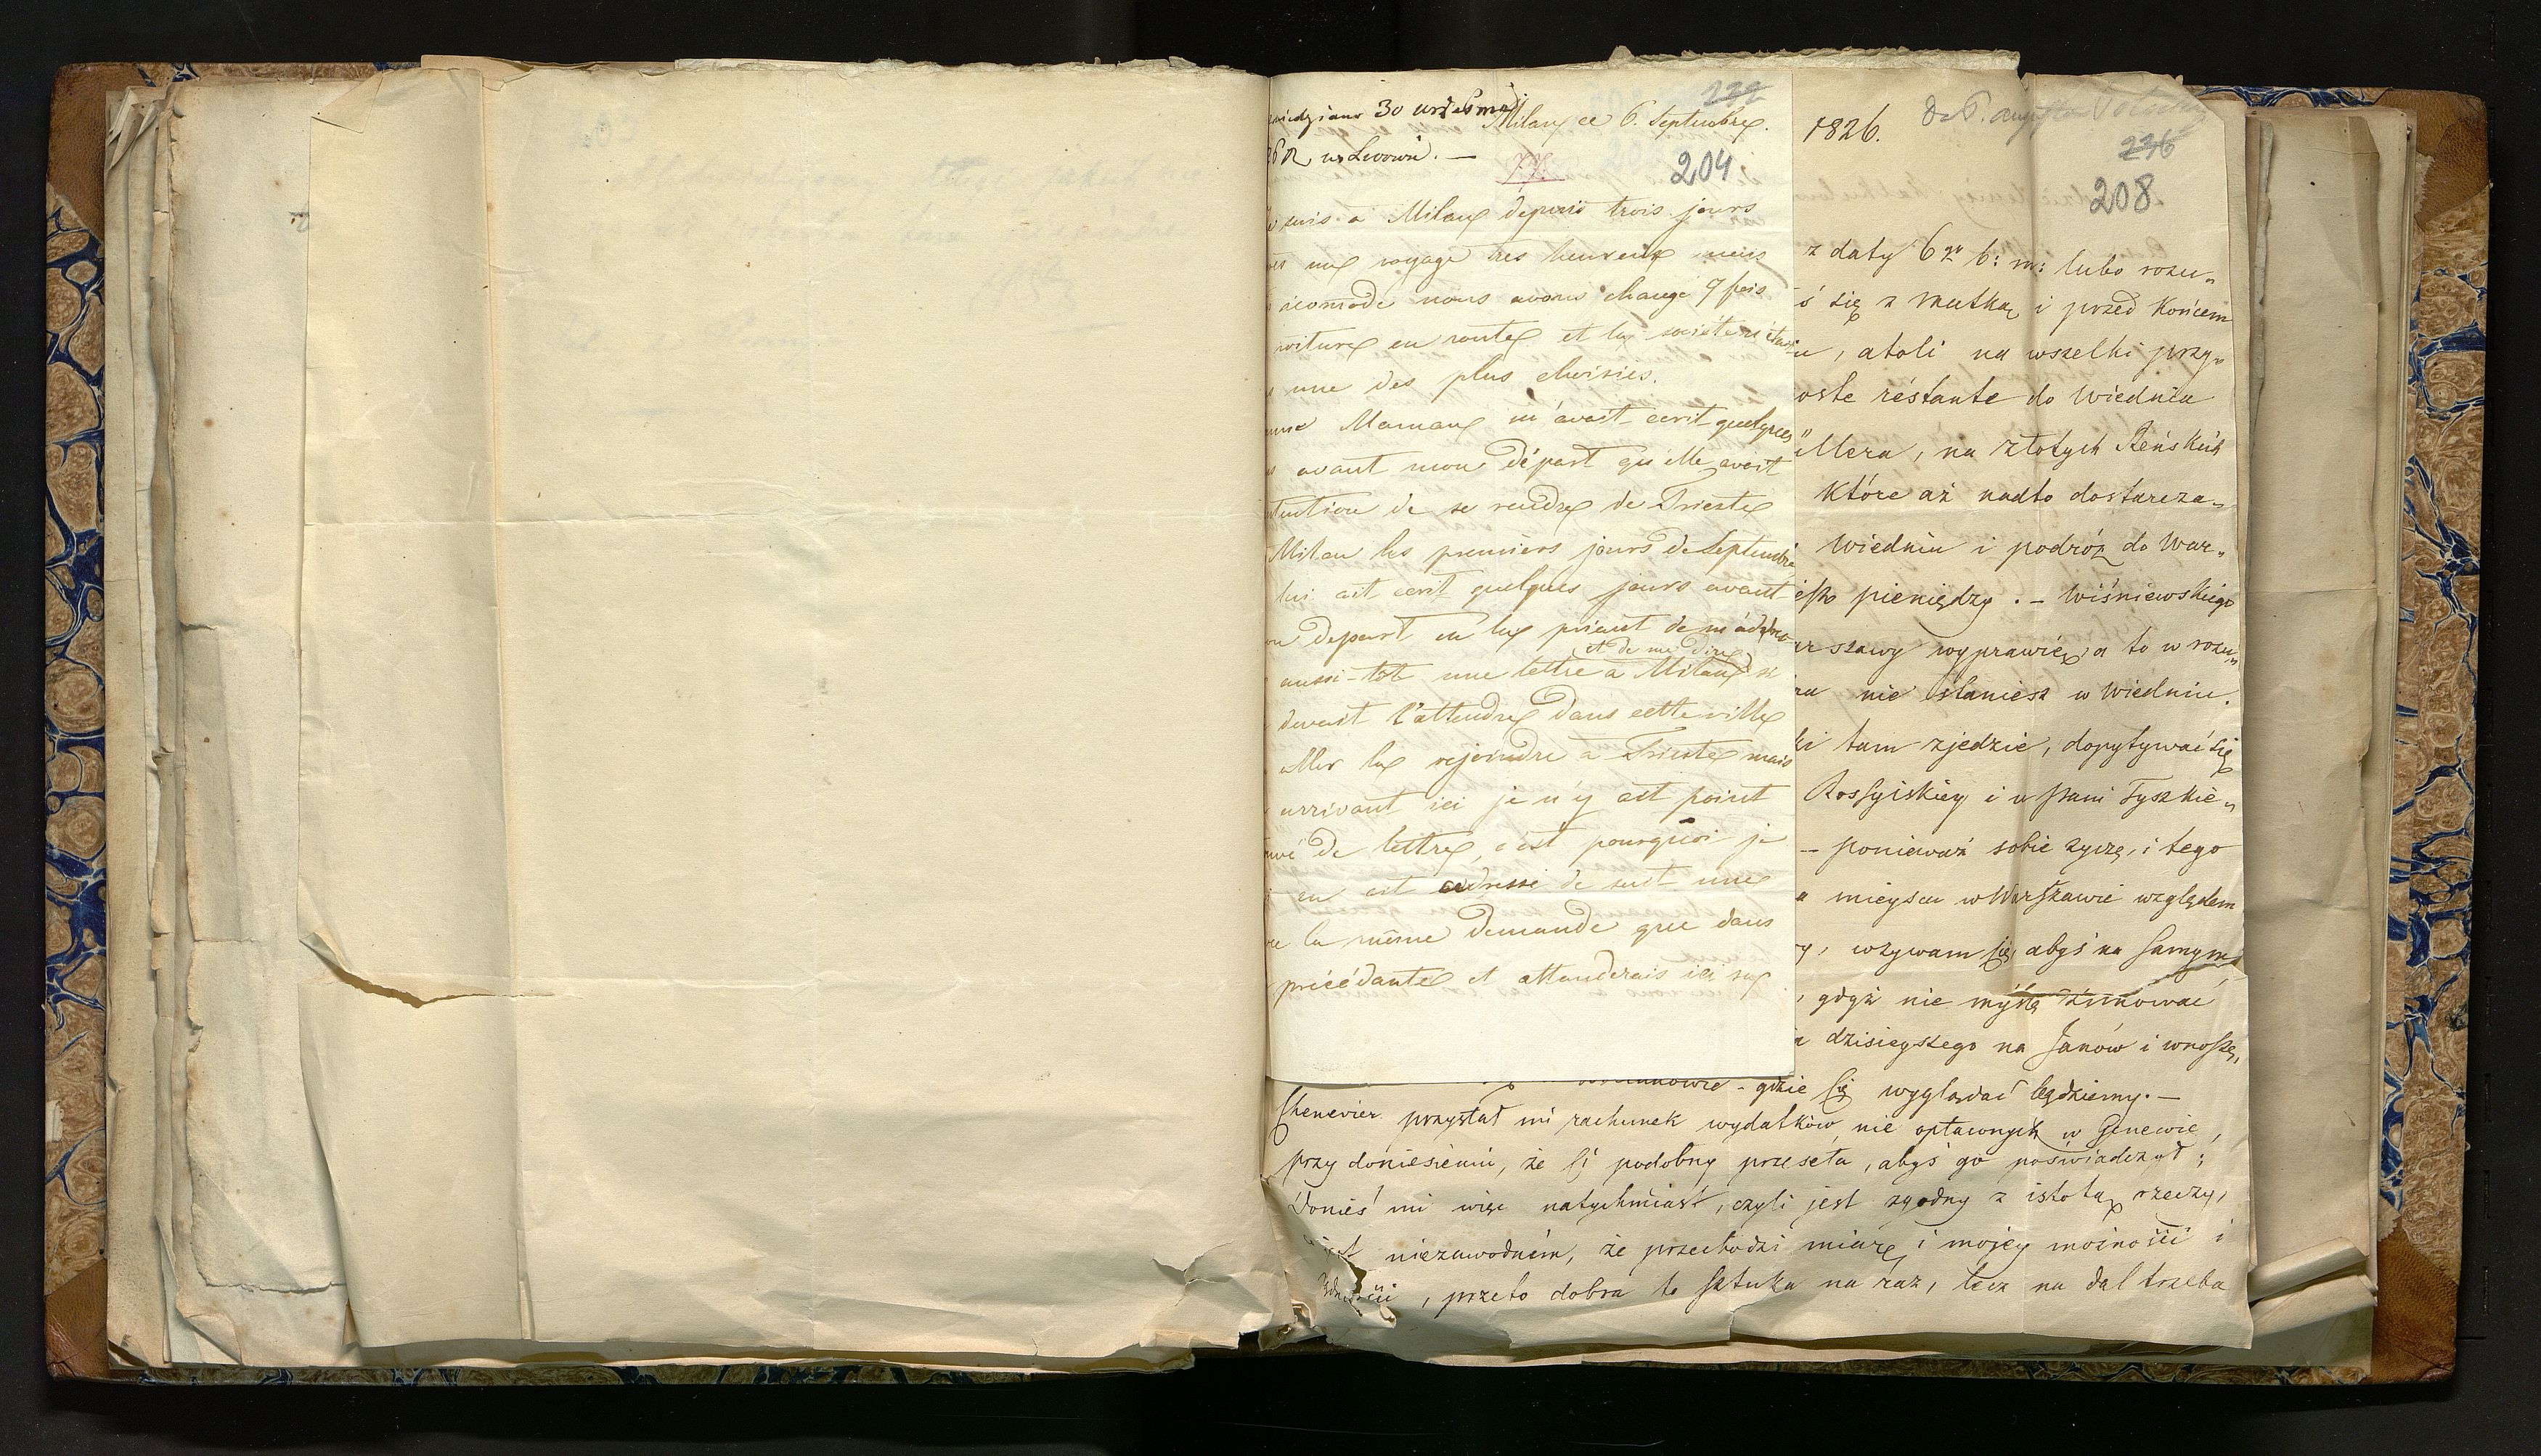 30
Milan ce 6. Septembre.
w Lwowie. —
204
suis a Milan depuis trois jours
une voyage tres heureux mais
icomode nous avons changé 9 fois
voiture en route et la société n'était
une des plus choisies.
Maman m'avait ecrit quelques
avant mon départ qu'elle avait
de se rendre de Trieste
Milan les premiers jours de Septembre
lui ait ecrit quelques jours avant
depart en la priant de m'adresser
et de me dire
aussi-tôt une lettre a Milan si
devait l'attendre dans cette ville
aller la rejoindre a Trieste mais
arrivant ici je n'y ait point
de lettre, c'est pourquoi je
en ait adressé de suit une
la même demande que dans
précédante et attenderais ici sa
1826.
236
208
z daty 6go b: m: lubo rozu„
ś się z Matką i przed Końcem
, atoli na wszelki przy„
réstante do Wiednia
, na złotych Reńskich
które aż nadto dostarcza„
Wiedniu i podróż do War„
pieniędzy . – Wiśniewskiego
wyprawię, a to w rozu„
nie staniesz w Wiedniu.
tam zjedzie, dopytywać się
Rossyiskiey i u Pani Tyszkie„
– ponieważ sobie zyczę, i tego
mieyscu w Warszawie względem
, wzywam Cię, abyś na samym
, gdyż nie myślę zimować
dzisieyszego na Janów i wnoszę,
– gdzie Cię wyglądać będziemy. —
Chenevier przysłał mi rachunek wydatków nie opłaconych w Genewie,
przy doniesieniu, że Ci podobny przeseła, abyś go poświadczył;
Donieś mi więc natychmiast, czyli jest zgodny z istotą rzeczy,
niezawodném, że przechodzi miarę i mojey możności i
, przeto dobra to sztuka na raz, lecz na dal trzeba